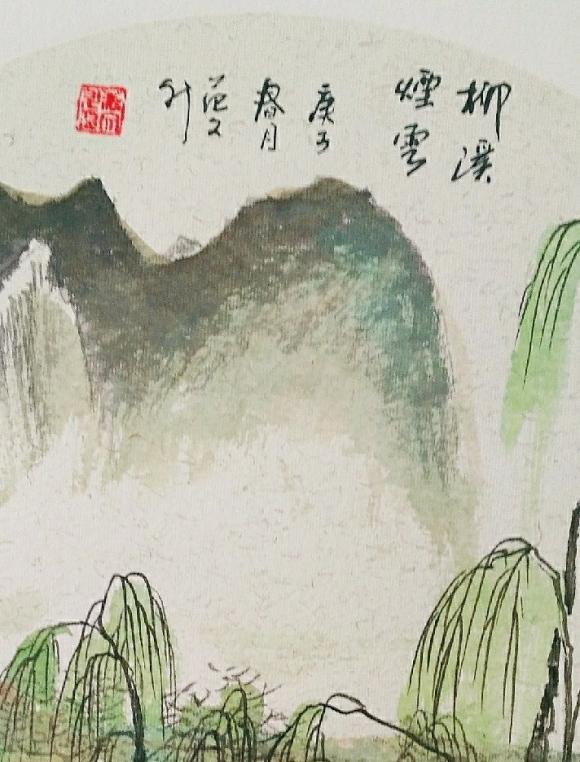 柳溪
煙雲
庚子
春月
范文